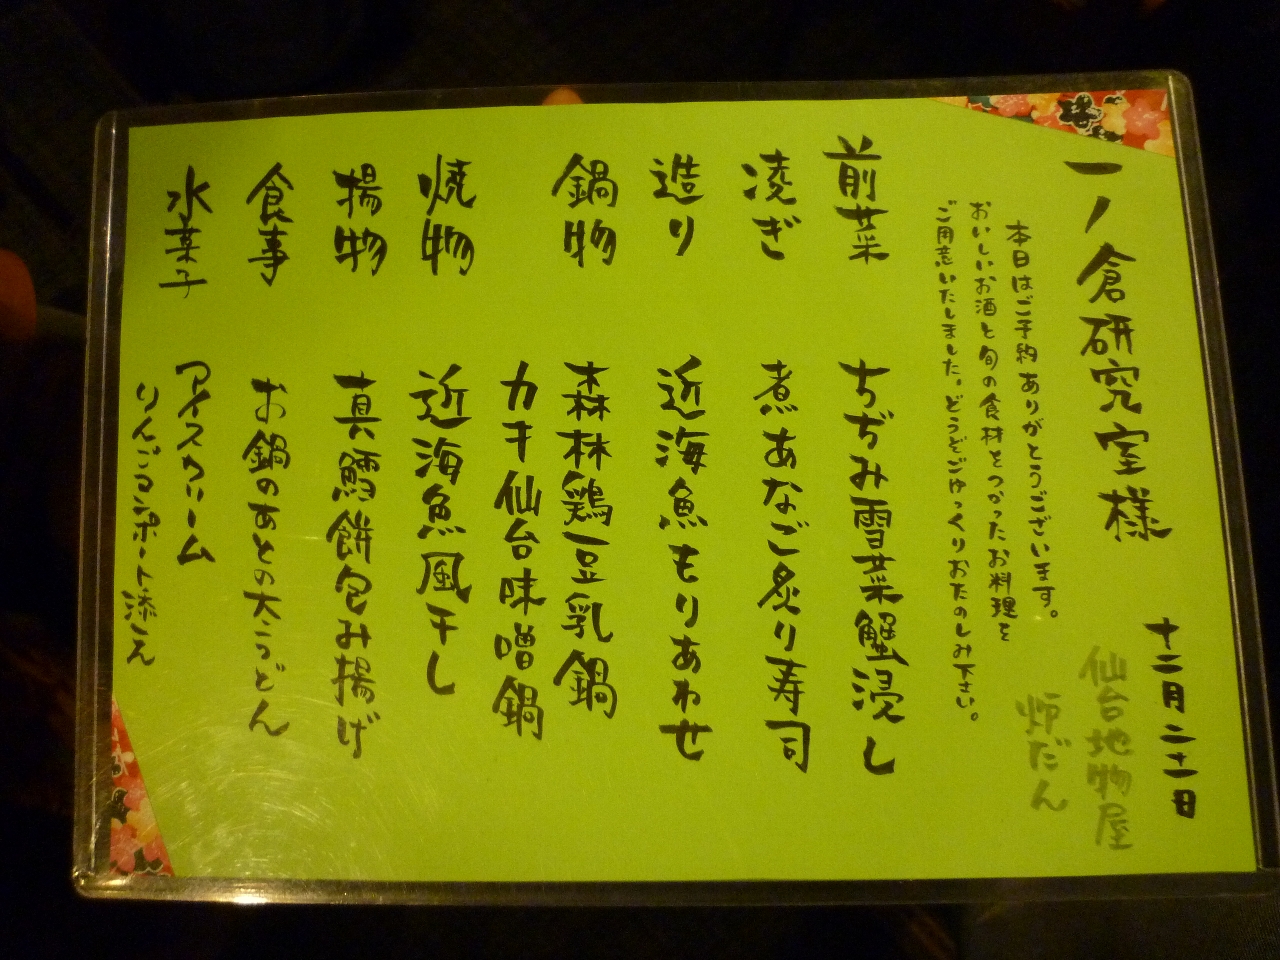 一ノ倉研究室様
十二月二十一日
仙台地物屋
炉だん
本日はご予約ありがとうございます。
おいしいお酒と旬の食材をつかったお料理を
ご用意いたしました。どうぞごゆっくりおたのしみ下さい。
前菜 ちぢみ雪菜蟹浸し
凌ぎ 煮あなご炙り寿司
造り 近海魚もりあわせ
鍋物 森林鶏豆乳鍋
カキ仙台味噌鍋
焼物 近海魚風干し
揚物 真鱈餅包み揚げ
食事 お鍋のあとの太うどん
水菓子 アイスクリーム
りんごコンポート添え